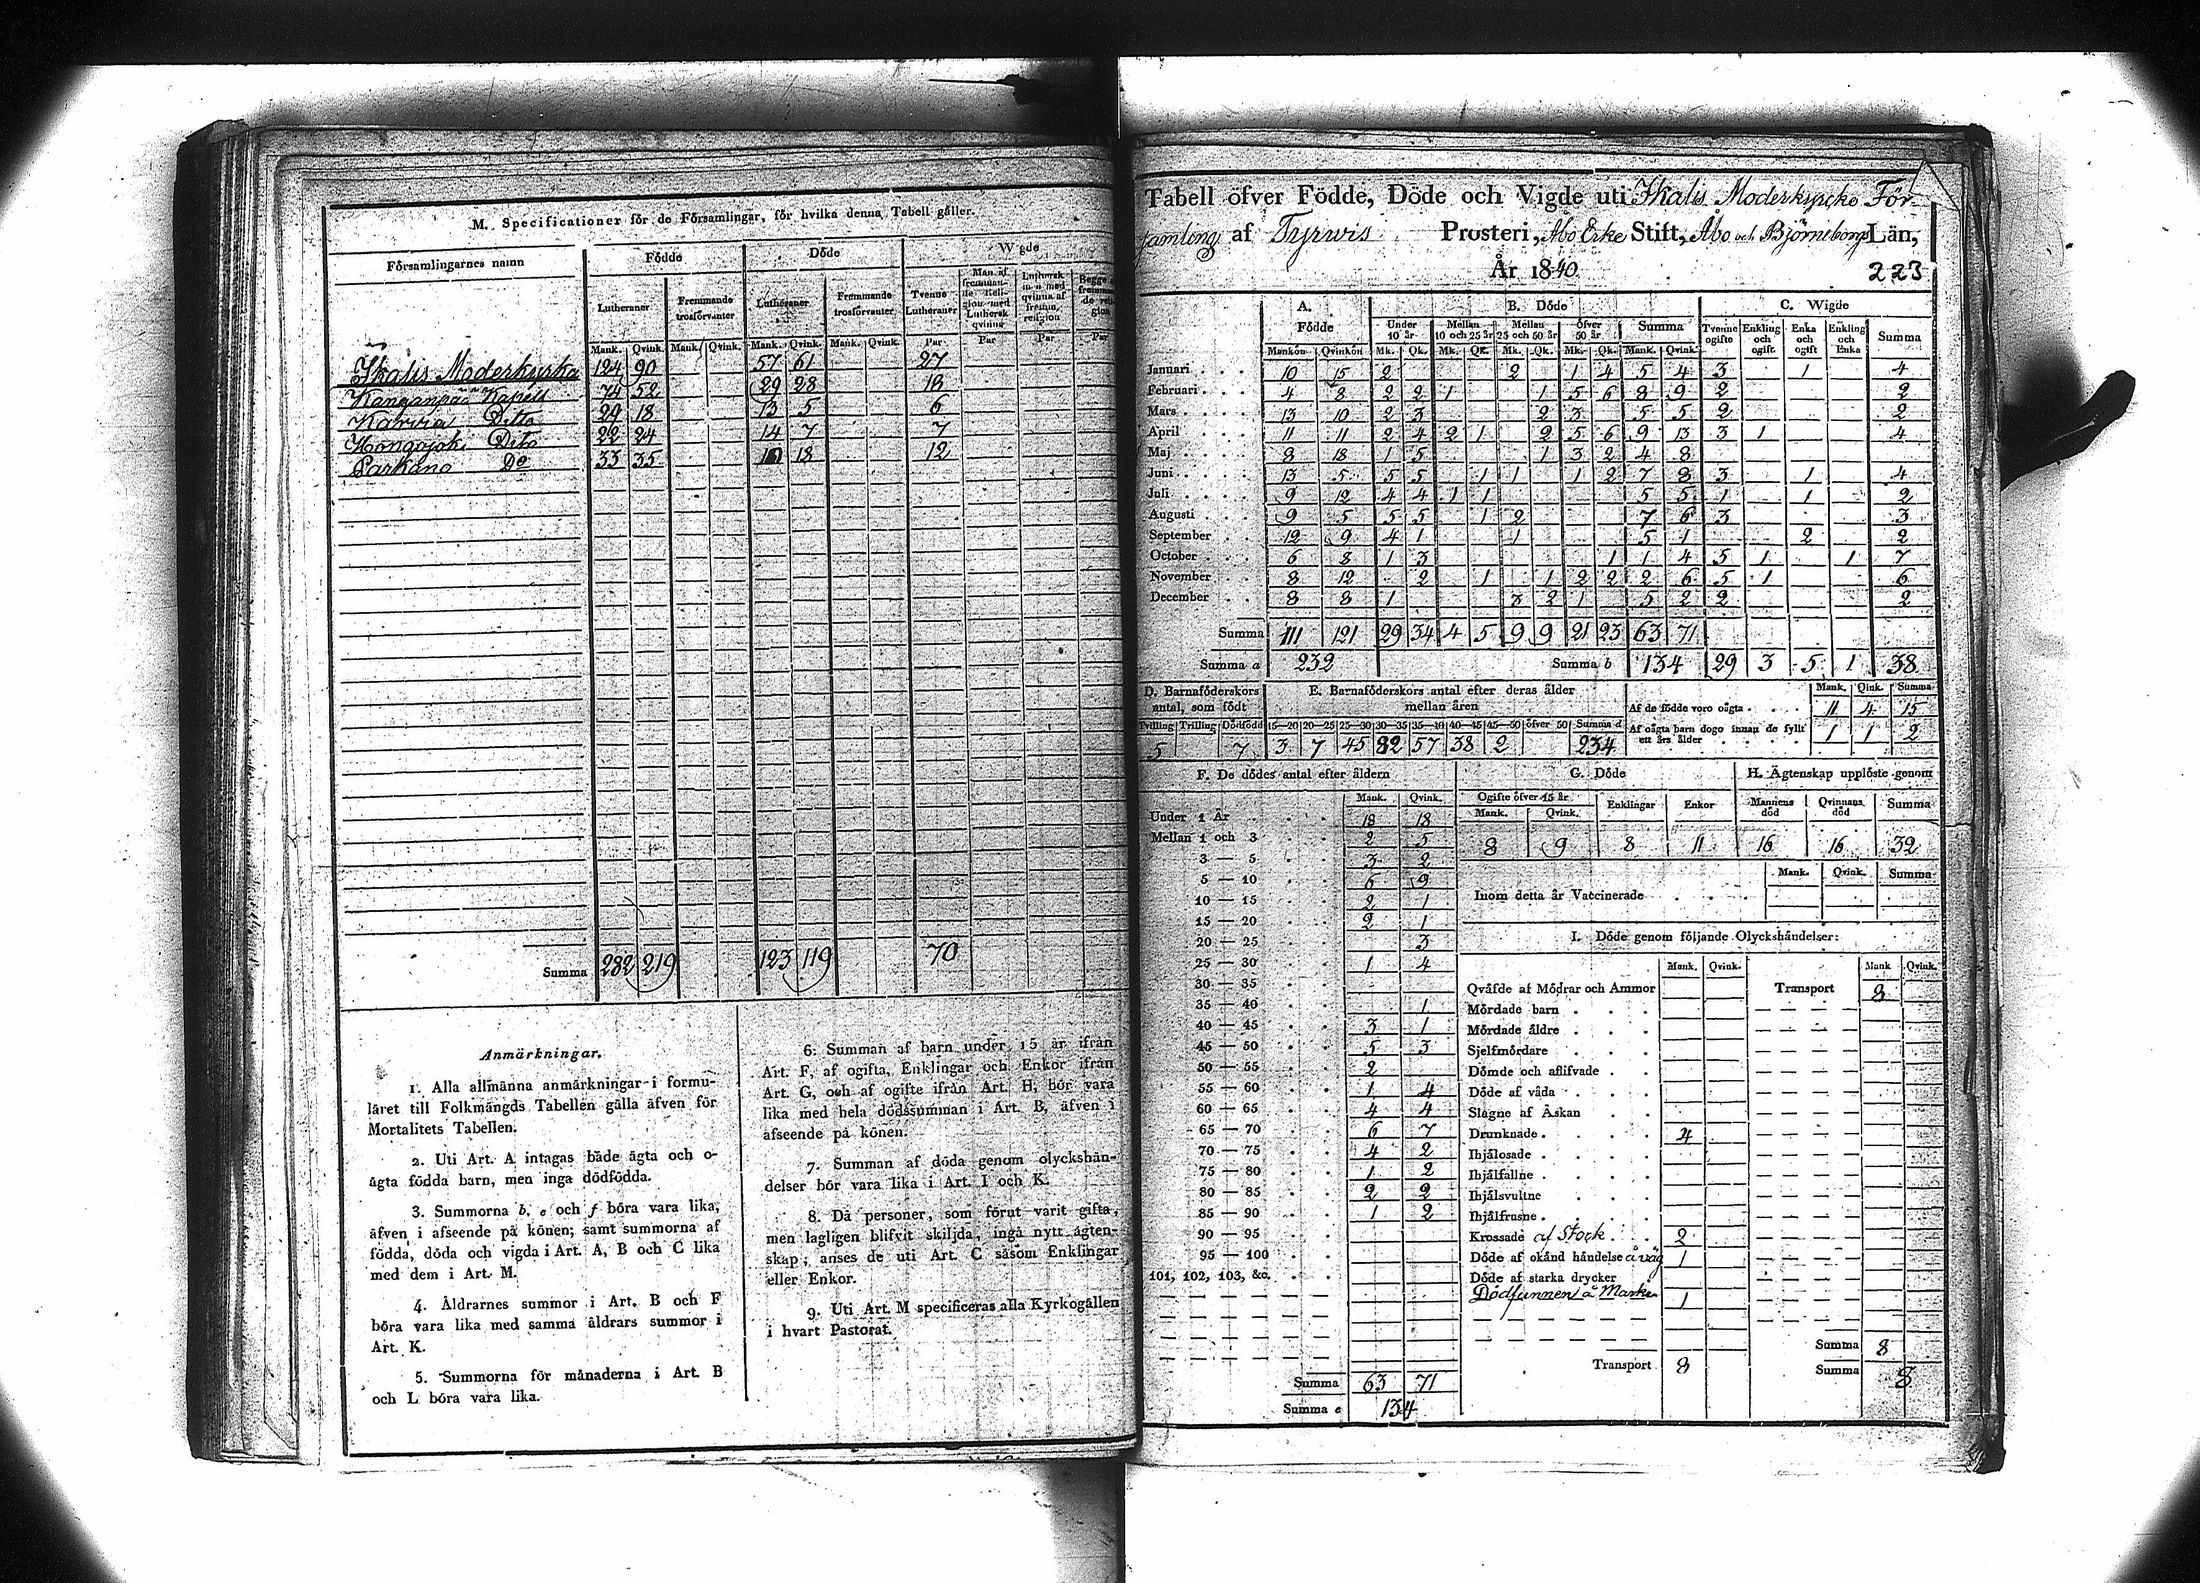 M. Specificationer för de Församlingar, för hvilka denna Tabell gäller.
Församlingarnes namn Födde Döde Wigde
Lutheraner Fremmande trosförvanter Lutheraner Fremmande trosförvanter Tvenne Lutheraner Man af fremmande Religion med Luthersk qvinna Luthersk man med qvinna af fremm. religion Begge fremmande religion
Mank. Qvink. Mank. Qvink. Mank. Qvink. Mank. Qvink. Par Par Par Par
Ikalis Moderkyrka 124 90 57 61 27
Kanganpää Kapell 74 52 29 28 18
Karvia Ditto 29 18 13 5 6
Hongojoki Dito 22 24 14 7 7
Parkano Do 33 35 10 18 12
Summa 282 219 123 119 70
Anmärkningar.
1. Alla allmänna anmärkningar i formu-
läret till Folkmängds Tabellen gälla äfven för
Mortalitets Tabellen.
2. Uti Art. A intagas både ägta och o-
ägta födda barn, men inga dödfödda.
3. Summorna b, e och f böra vara lika,
äfven i afseende på könen; samt summorna af
födda, döda och vigda i Art. A, B och C lika
med dem i Art. M.
4. Åldrarnes summor i Art. B och F
böra vara lika med samma åldrars summor i
Art. K.
5. Summorna för månaderna i Art. B
och L böra vara lika.
6. Summan af barn under 15 år ifrån
Art. F, af ogifta, Enklingar och Enkor ifrån
Art. G, och af ogifte ifrån Art. H, bör vara
lika med hela dödssumman i Art. B, äfven i
afseende på könen.
7. Summan af döda genom olyckshän-
delser bör vara lika i Art. I och K.
8. Då personer, som förut varit gifta,
men lagligen blifvit skiljda, ingå nytt ägten-
skap, anses de uti Art. C såsom Enklingar
eller Enkor.
9. Uti Art. M specificeras alla Kyrkogällen
i hvart Pastorat.
Tabell öfver Födde, Döde och Vigde uti Ikalis Moderkyrcko För
samling af Tyrwis Prosteri, Åbo Erke Stift, Åbo och Björneborgs Län,
År 1840. 223
A. Födde B. Döde C. Wigde
Under 10 år Mellan 10 och 25 år Mellan 25 och 50 år öfver 50 år Summa Tvenne ogifte Enkling och ogift. Enka och ogift Enkling och Enka Summa
Mankön Qvinkön Mk. Qk. Mk. Qk. Mk. Qk. Mk. Qk. Mank. Qvink.
Januari 10 15 2 2 1 4 5 4 3 1 4
Februari 4 8 2 2 1 1 5 6 8 9 2 2
Mars 13 10 2 3 2 3 5 5 2 2
April 11 11 2 4 2 1 2 5 6 9 13 3 1 4
Maj 8 18 1 5 1 3 2 4 8
Juni 13 5 5 5 1 1 1 2 7 8 3 1 4
Juli 9 12 4 4 1 1 5 5 1 1 2
Augusti 9 5 5 5 1 2 7 6 3 3
September 12 9 4 1 1 5 1 2 2
October 6 8 1 3 1 1 4 5 1 1 7
November 8 12 2 1 1 2 2 2 6 5 1 6
December 8 8 1 3 2 1 5 2 2 2
Summa 111 121 29 34 4 5 9 9 21 23 63 71
Summa a 232 Summa b 134 29 3 5 1 38
D. Barnaföderskors antal, som födt
Tvilling Trilling Dödfödd
5 7
E. Barnaföderskors antal efter deras ålder mellan åren
15—20 20—25 25—30 30—35 35—40 40—45 45—50 öfver 50 Summa d
3 7 45 82 57 38 2 234
Mank. Qink. Summa
Af de födde voro oägta 11 4 15
Af oägta barn dogo innan de fyllt ett års ålder 1 1 2
F. De dödes antal efter åldern
Mank. Qvink.
Under 1 År 18 18
Mellan 1 och 3 2 5
3 — 5 3 2
5 — 10 6 9
10 — 15 2 1
15 — 20 2 1
20 — 25 3
25 — 30 1 4
30 — 35
35 — 40 1
40 — 45 3 1
45 — 50 5 3
50 — 55 2
55 — 60 1 4
60 — 65 4 4
65 — 70 6 7
70 — 75 4 2
75 — 80 1 2
80 — 85 2 2
85 — 90 1 2
90 — 95
95 — 100
101, 102, 103, &c.
Summa 63 71
Summa e 134
G. Döde
Ogifte öfver 15 år Enklingar Enkor
Mank. Qvink.
8 9 8 11
H. Ägtenskap upplöste genom
Mannens död Qvinnans död Summa
16 16 32
Mank. Qvink. Summa
Inom detta år Vaccinerade
I. Döde genom följande Olyckshändelser:
Mank. Qvink. Mank Qvink.
Qväfde af Mödrar och Ammor Transport 8
Mördade barn
Mördade äldre
Sjelfmördare
Dömde och aflifvade
Döde af våda
Slagne af Åskan
Drunknade 4
Ihjälosade
Ihjälfallne
Ihjälsvultne
Ihjälfrusne
Krossade af Stock 2
Döde af okänd händelse å väg 1
Döde af starka drycker
Dödfunnen å Marken 1
Summa 8
Transport 8 Summa 8